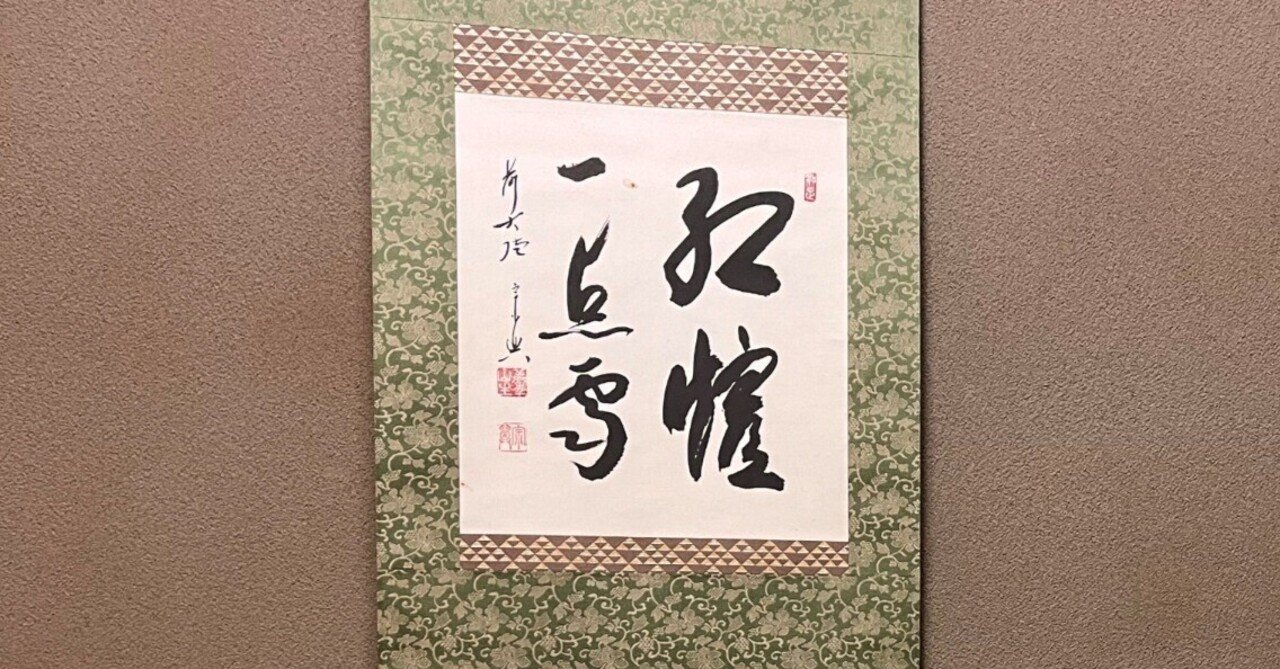 紅爐
一点雪
前大徳